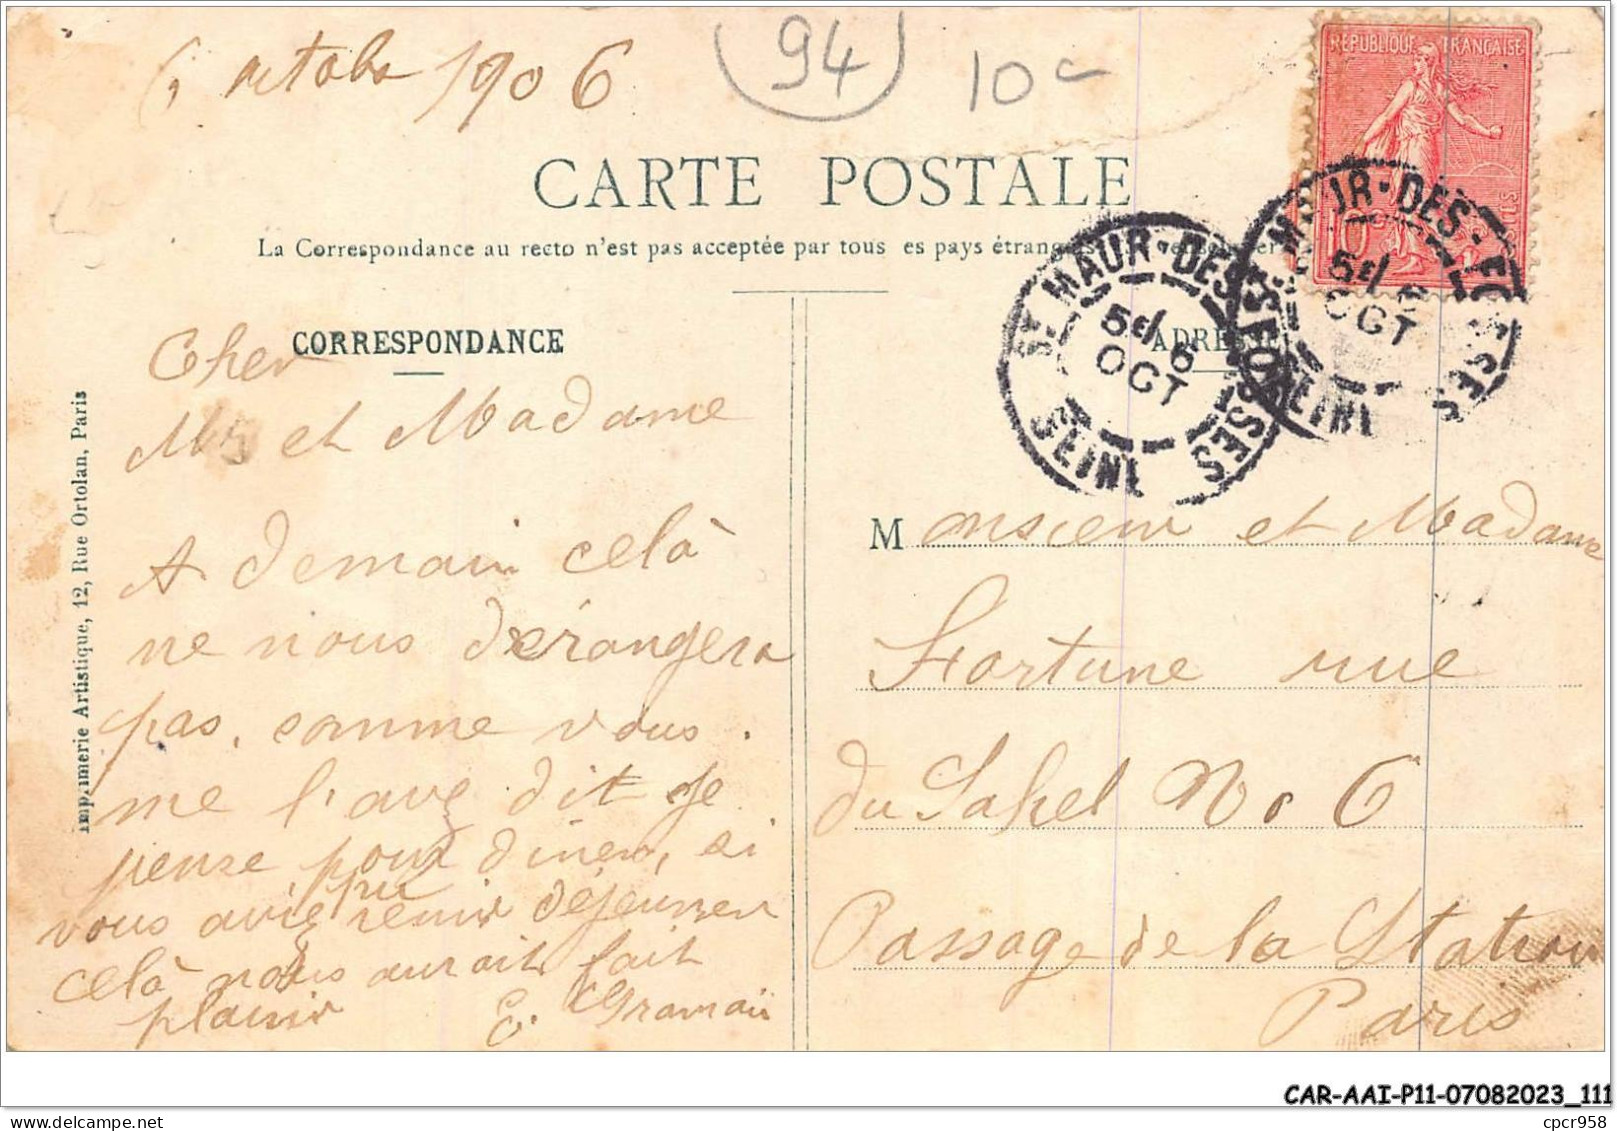 6 octobre 1906
94
10c
REPUBLIQUE FRANÇAISE
CARTE POSTALE
La Correspondance au recto n'est pas acceptée par tous es pays étrang
CORRESPONDANCE
ADRESSE
ST MAUR-DES-FOSSES
5E 6
OCT
SEINE
ST MAUR-DES-FOSSES
5E 6
OCT
SEINE
Imprimerie Artistique, 12, Rue Ortolan, Paris
Cher
Mr et Madame
A demain celà
ne nous dérangera
pas, comme vous
me l'avez dit je
pense pour diner, si
vous aviez pu venir déjeuner
celà nous aurait fait
plaisir
Monsieur et Madame
Fortune rue
du Sahel No 6
Passage de la Station
Paris
CAR-AAI-P11-07082023_111
cpcr958